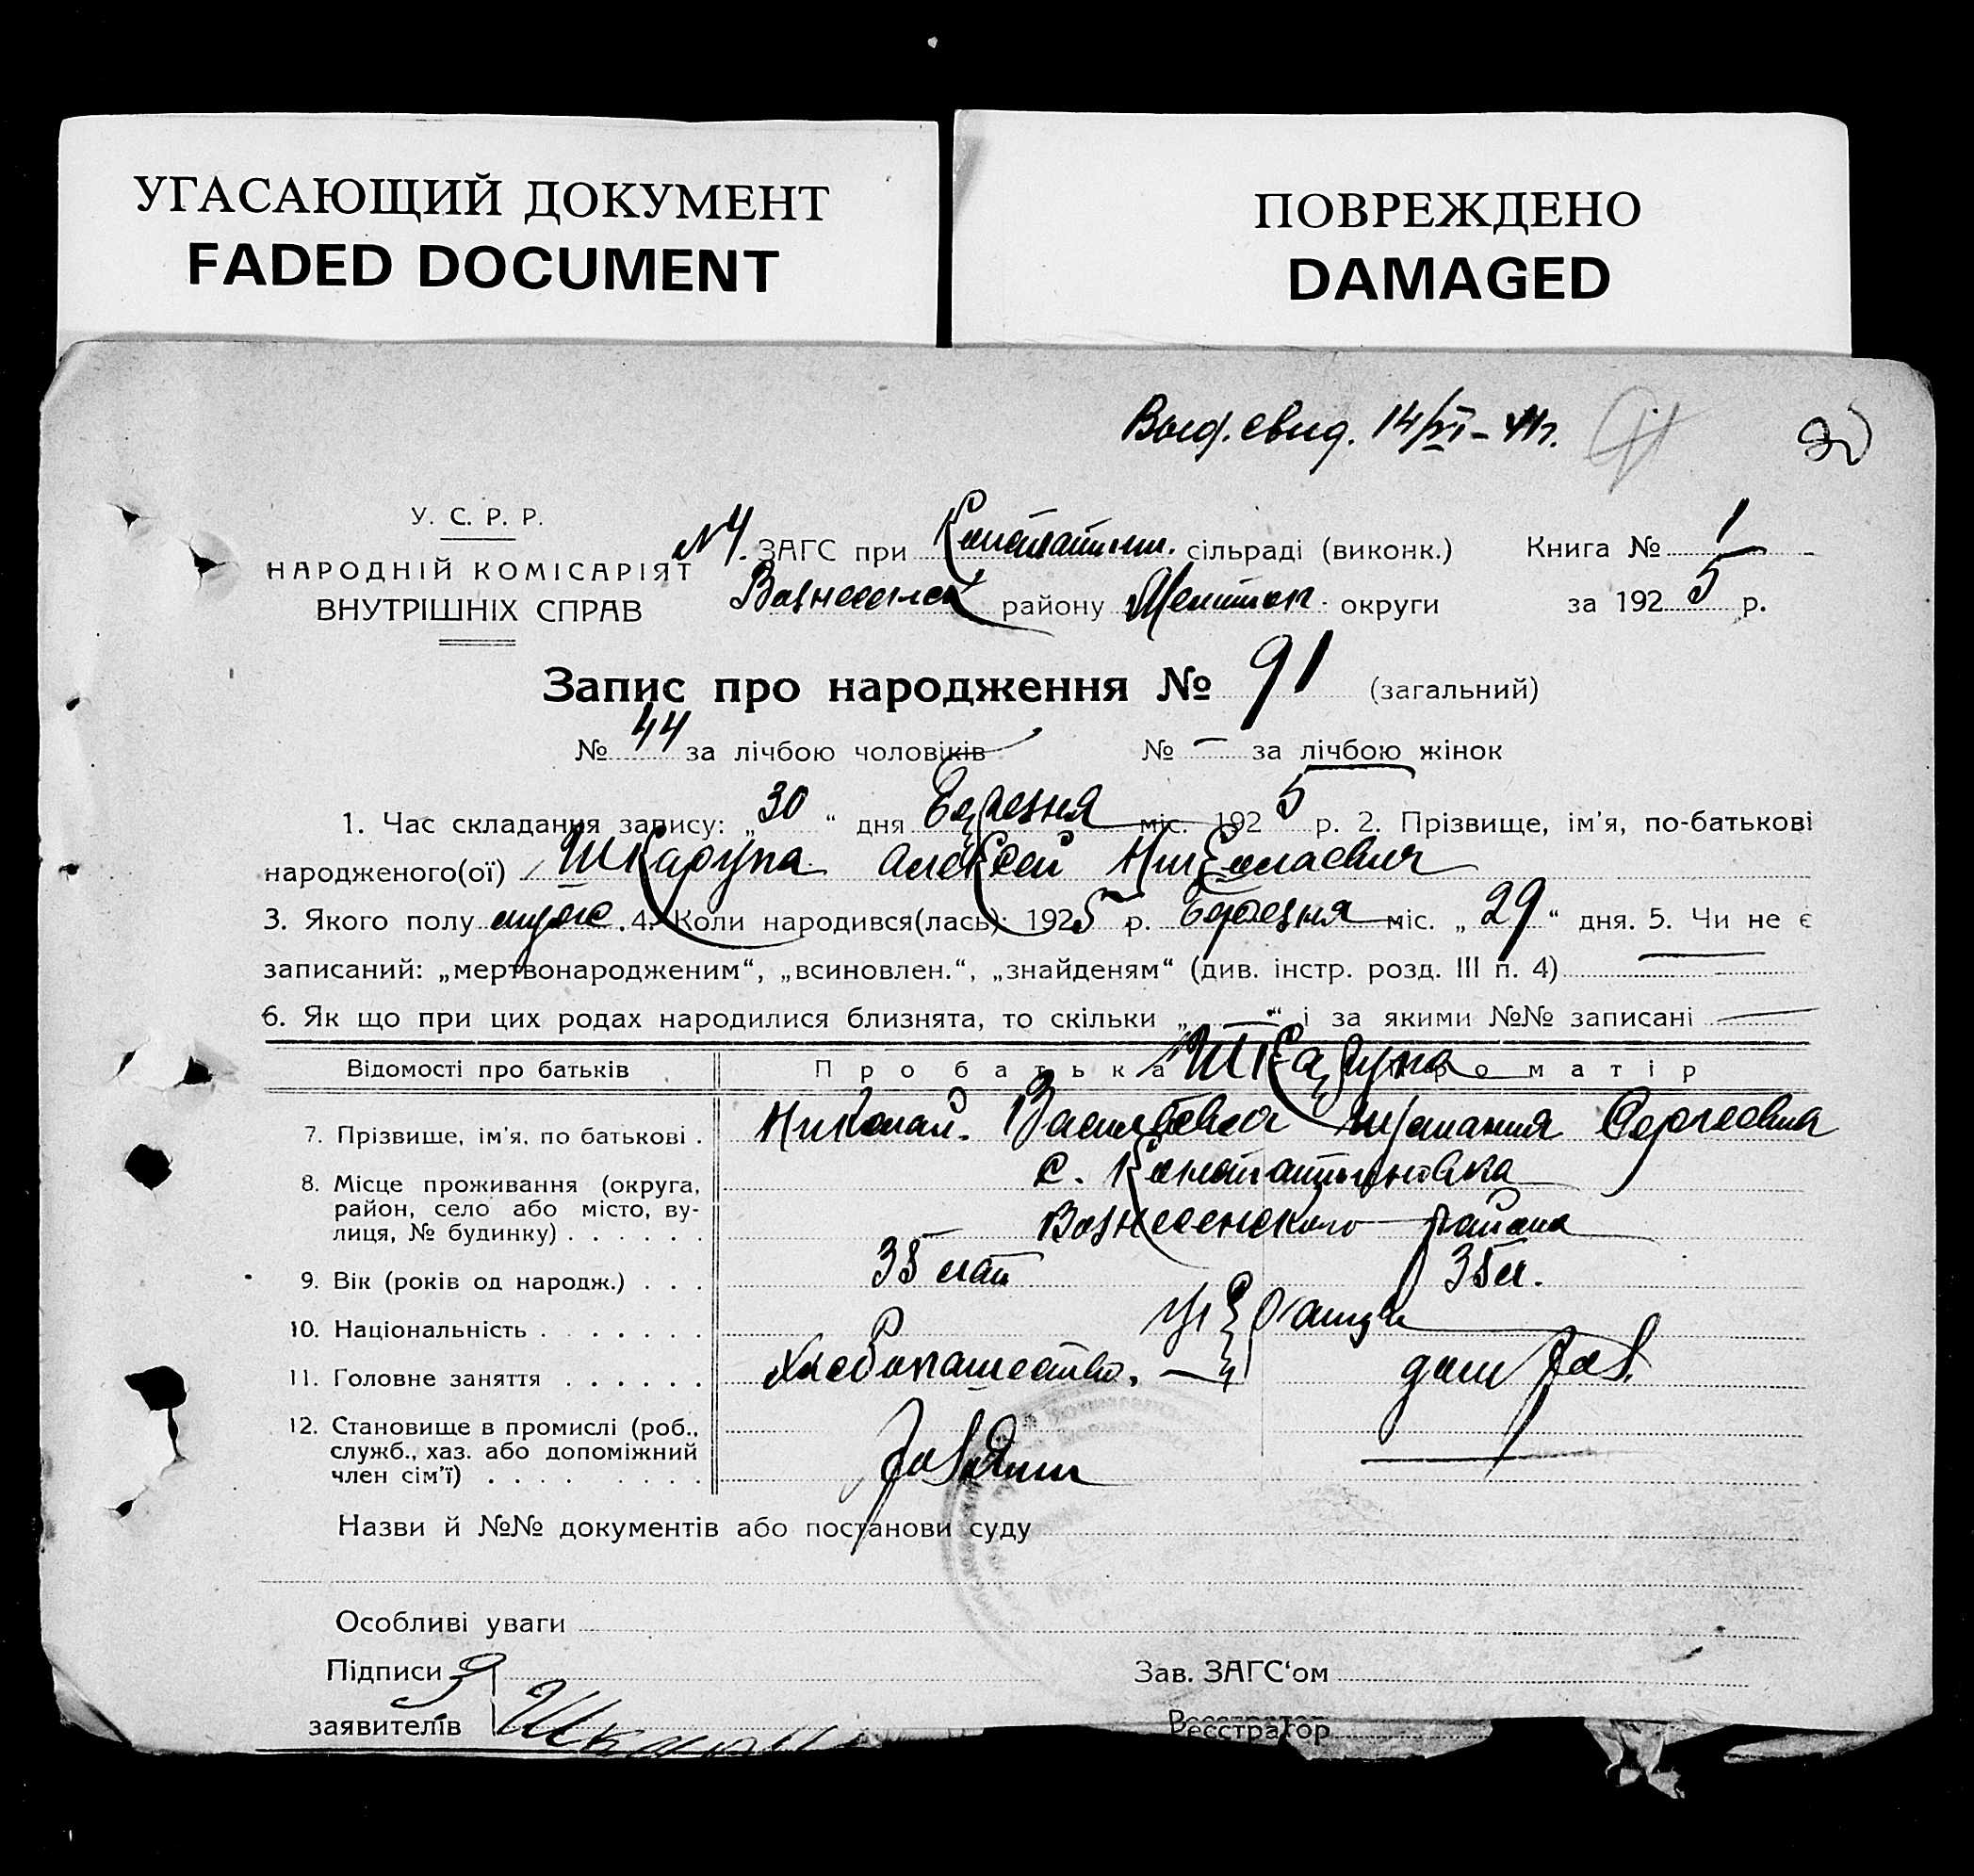 УГАСАЮЩИЙ ДОКУМЕНТ
FADED DOCUMENT
ПОВРЕЖДЕНО
DAMAGED
Выд. свид. 14/VI-41г.
У. С. Р. Р.
НАРОДНІЙ КОМІСАРІЯТ
ВНУТРІШНІХ СПРАВ
ЗАГС при Константин. сільраді (виконк.) Книга № 1
Вознесенск району Мелитоп. округи за 1925 р.
Запис про народження № 91 (загальний)
№ 44 за лічбою чоловіків № — за лічбою жінок
1. Час складання запису: „30“ дня Березня міс. 1925 р. 2. Прізвище, ім'я, по-батькові
народженого(ої) Шкарупа Алексей Николаевич
3. Якого полу муж. 4. Коли народився(лась) 1925 р. Березня міс. „29“ дня. 5. Чи не є
записаний: „мертвонародженим“, „всиновлен.“, „знайденям“ (див. інстр. розд. III п. 4) —
6. Як що при цих родах народилися близнята, то скільки „—“ і за якими №№ записані —
Відомості про батьків Про батька Шкарупа Про матір
7. Прізвище, ім'я, по батькові . Николай Васильевич Сергеевна
8. Місце проживання (округа, район, село або місто, вулиця, № будинку) . . . . . . с. Константиновка
Вознесенского района
9. Вік (років од народж.) . . . 35 лет 35 л.
10. Національність . . . . . . .
11. Головне заняття . . . . . . Хлебопашество. дом
12. Становище в промислі (роб., служб., хаз. або допоміжний член сім'ї) . . . . . . . . .
Назви й №№ документів або постанови суду
Особливі уваги
Підписи Зав. ЗАГС'ом
заявителів Реєстратор